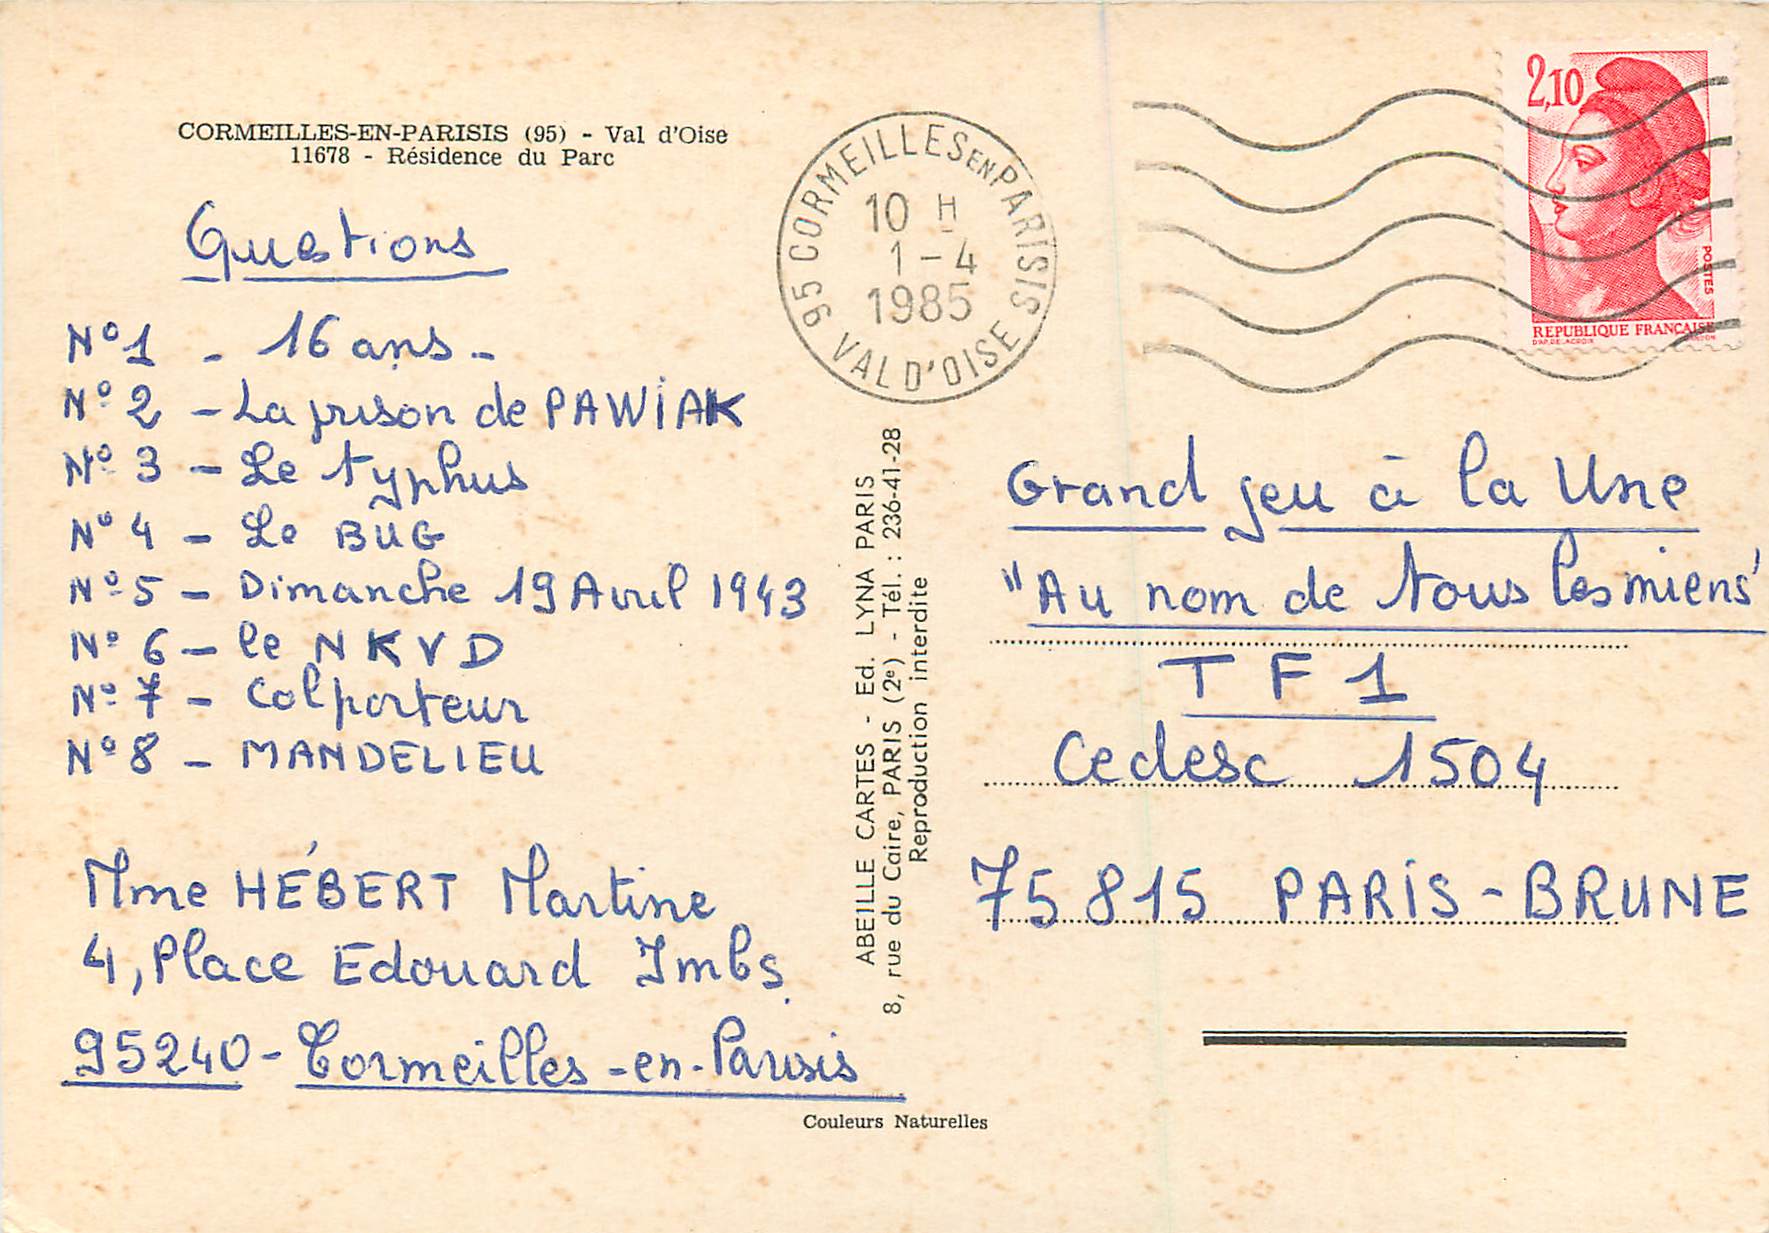 CORMEILLES-EN-PARISIS (95) - Val d'Oise
11678 - Résidence du Parc
Questions
N°1 - 16 ans -
N°2 - La prison de PAWIAK
N°3 - Le typhus
N°4 - Le BUG
N°5 - Dimanche 19 Avril 1943
N°6 - le NKVD
N°7 - Colporteur
N°8 - MANDELIEU
Mme HÉBERT Martine
4, Place Edouard Imbs
95240 - Cormeilles-en-Parisis
95 CORMEILLES EN PARISIS
10 H
1-4
1985
VAL D'OISE
2,10
POSTES
REPUBLIQUE FRANCAISE
ABEILLE CARTES - Ed. LYNA PARIS
8, rue du Caire, PARIS (2e) - Tél. : 236-41-28
Reproduction interdite
Grand jeu à la Une
"Au nom de tous les miens"
TF1
Cedesc 1504
75815 PARIS-BRUNE
Couleurs Naturelles